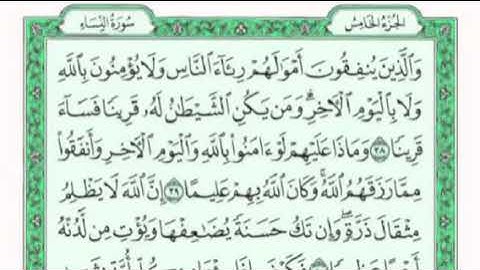 الجزء الخامس
سورة النساء
وَٱلَّذِينَ يُنفِقُونَ أَمْوَٰلَهُمْ رِئَآءَ ٱلنَّاسِ وَلَا يُؤْمِنُونَ بِٱللَّهِ
وَلَا بِٱلْيَوْمِ ٱلْءَاخِرِ ۗ وَمَن يَكُنِ ٱلشَّيْطَٰنُ لَهُۥ قَرِينًا فَسَآءَ
قَرِينًا ٣٨ وَمَاذَا عَلَيْهِمْ لَوْ ءَامَنُوا۟ بِٱللَّهِ وَٱلْيَوْمِ ٱلْءَاخِرِ وَأَنفَقُوا۟
مِمَّا رَزَقَهُمُ ٱللَّهُ ۚ وَكَانَ ٱللَّهُ بِهِمْ عَلِيمًا ٣٩ إِنَّ ٱللَّهَ لَا يَظْلِمُ
مِثْقَالَ ذَرَّةٍ ۖ وَإِن تَكُ حَسَنَةً يُضَٰعِفْهَا وَيُؤْتِ مِن لَّدُنْهُ